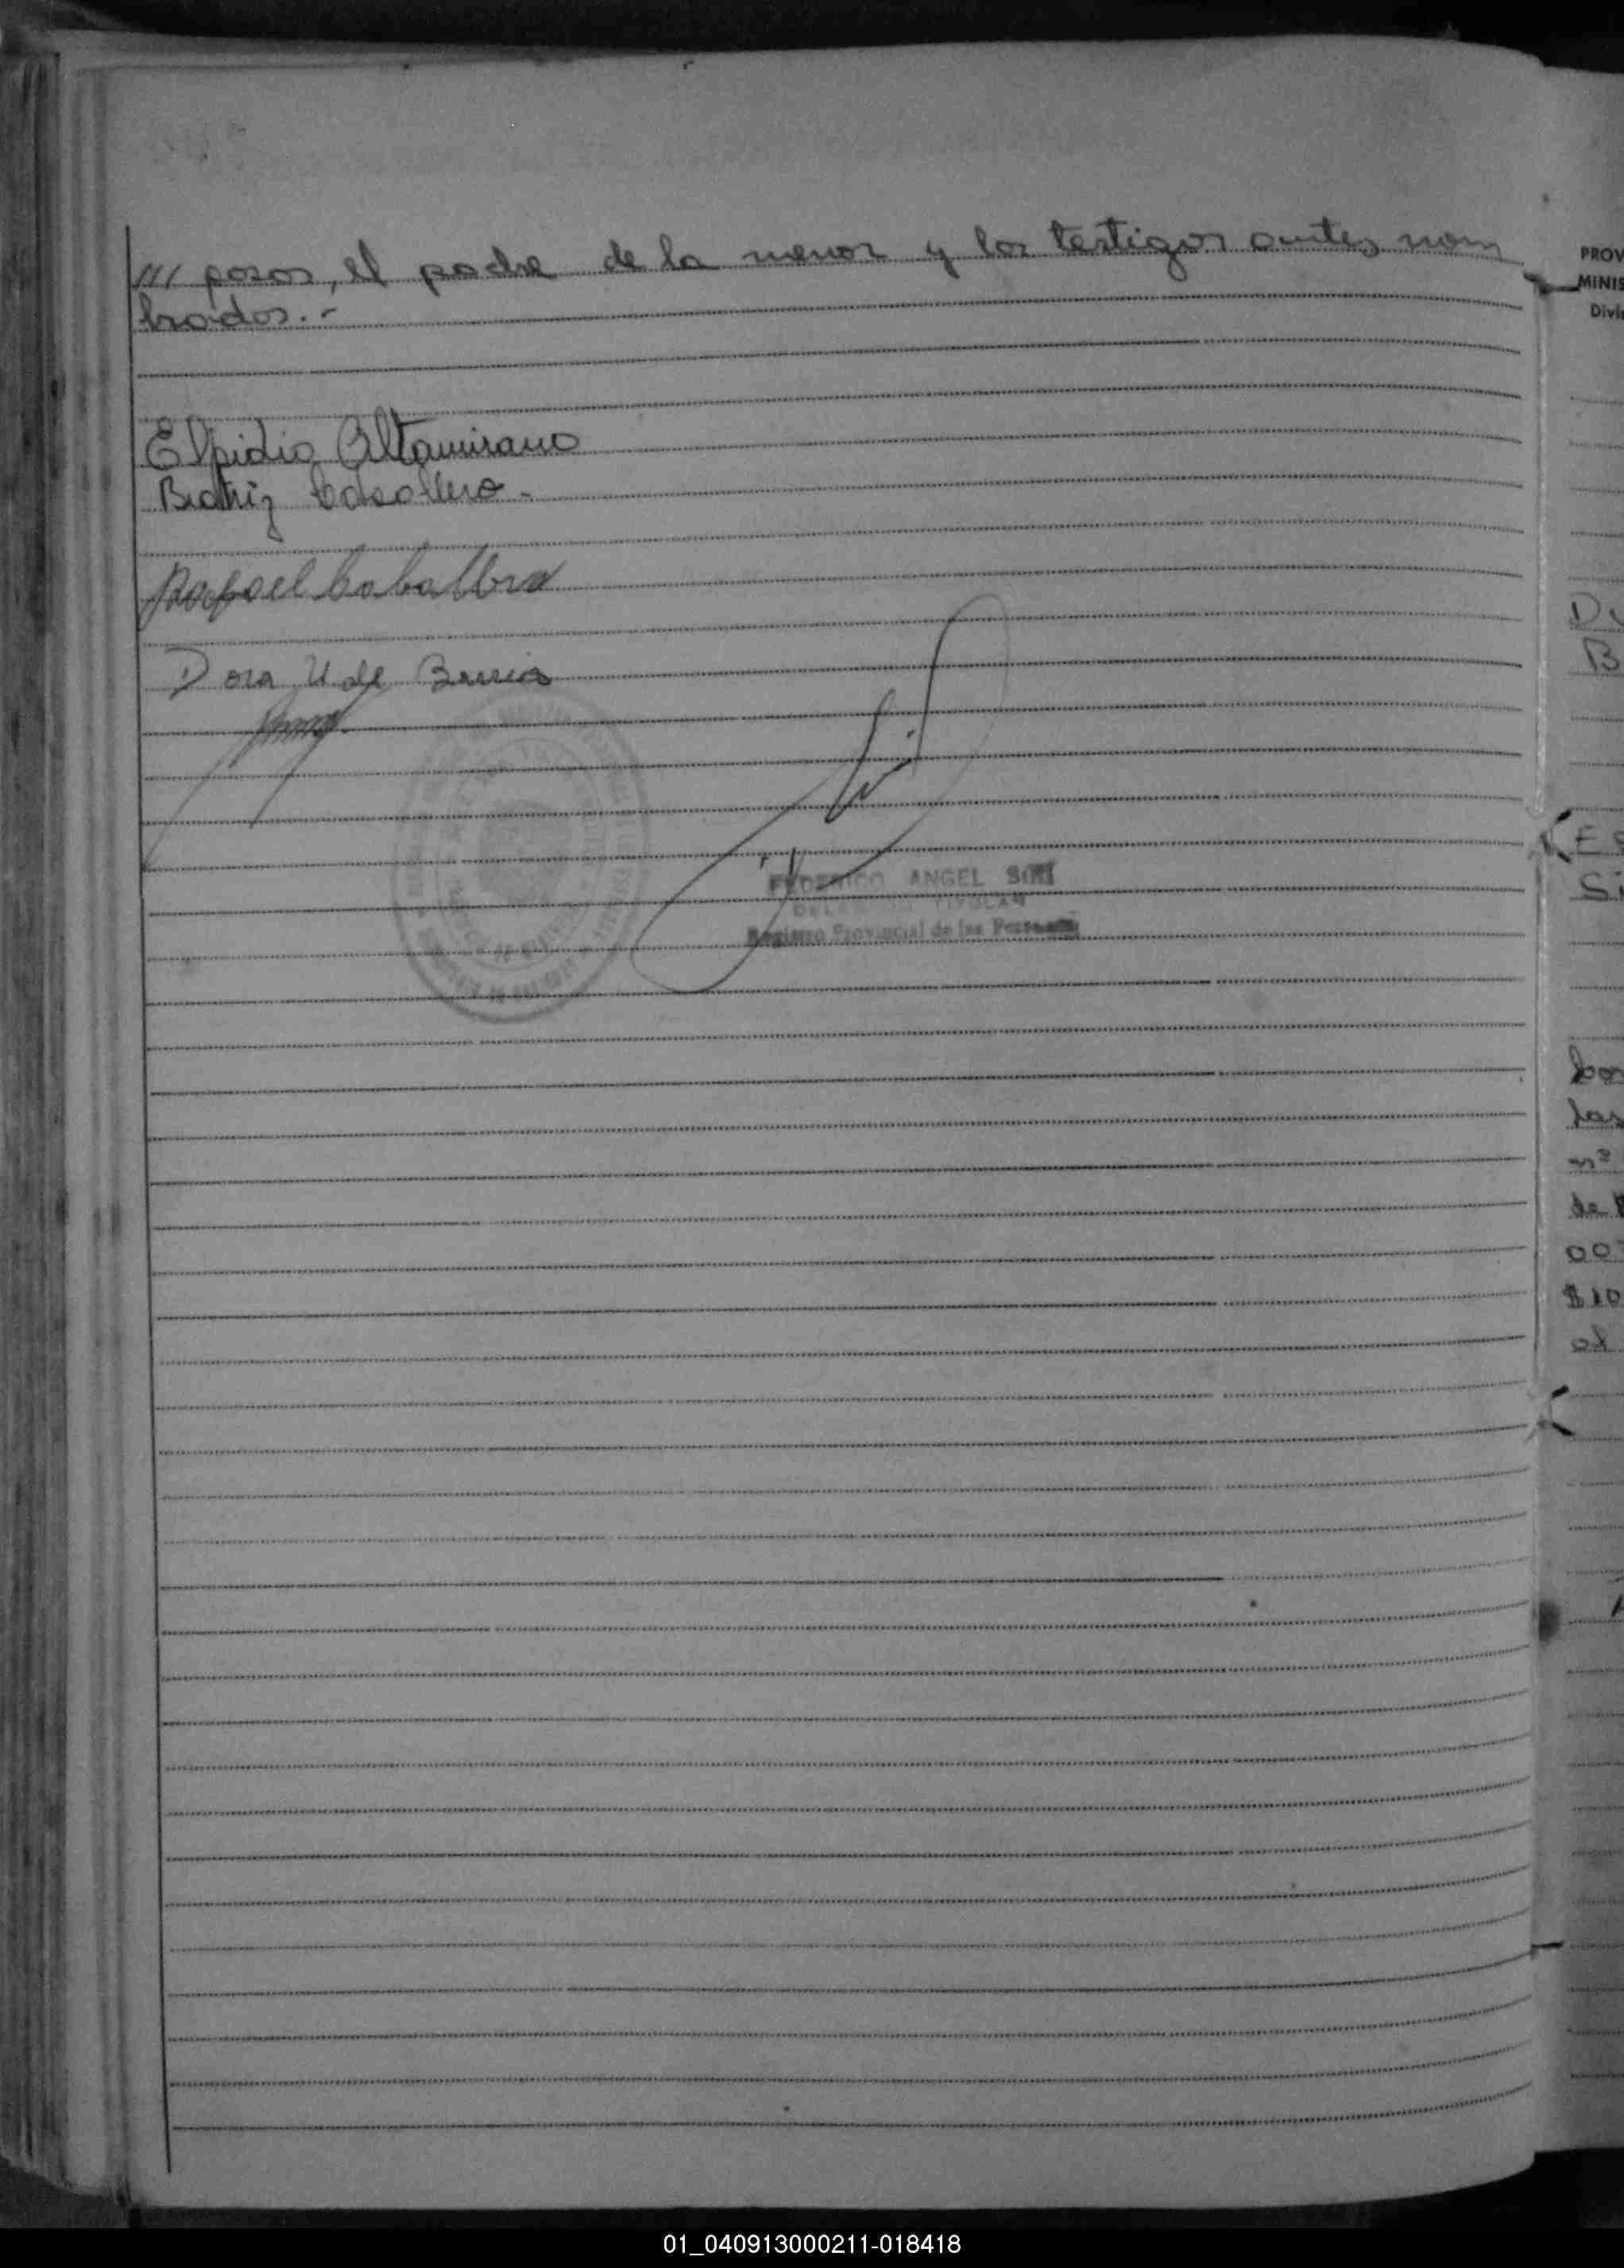 /// posos, el padre de la menor y los testigos antes nom
brados.-
Elpidio Altamirano
Beatriz Caballero.
Rafael Caballero
Dora U de
FEDERICO ANGEL
Registro Provincial de las Personas
PROV
MINIS
Divi
B
Si
las
nº
de
00
$10
al
01_040913000211-018418